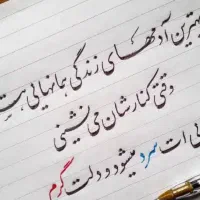 بهترین آدمهای زندگی همانهایی هست
وقتی کنارشان می نشینی
ات سرد میشود و دلت گرم